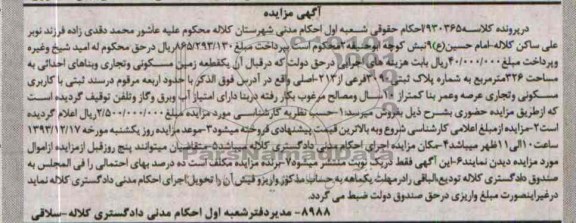 آگهی مزایده
درپرونده کلاسه ۹۳۰۳۶۵/احکام حقوقی شعبه اول احکام مدنی شهرستان کلاله محکوم علیه عاشور محمد دقدی زاده فرزند نوبر
علی ساکن کلاله-امام حسین(ع)۹نبش کوچه ابوحنیفه۲محکوم است بپرداخت مبلغ ۸۶۵/۲۹۳/۱۳۰ریال درحق محکوم له امید شیخ وغیره
وپرداخت مبلغ۴۰/۰۰۰/۰۰۰ریال بابت هزینه های اجرایی درحق دولت که درقبال آن یکقطعه زمین مسکونی وتجاری وبناهای احداثی به
مساحت ۳۲۶مترمربع به شماره پلاک ثبتی ۳۰۹فرعی از۲۱۳-اصلی واقع در آدرس فوق الذکر با حدود اربعه مرقوم درسند ثبتی با کاربری
مسکونی وتجاری عرصه وعمر بنا کمتراز ۱۰سال ومصالح مرغوب بکار رفته دربنا دارای امتیاز آب وبرق وگاز وتلفن توقیف گردیده است
که ازطریق مزایده حضوری بشرح ذیل بفروش میرسد۱-حسب نظریه کارشناسی مورد مزایده مبلغ ۲/۵۰۰/۰۰۰/۰۰۰ریال اعلام گردیده
است۲-مزایده ازمبلغ اعلامی کارشناسی شروع وبه بالاترین قیمت پیشنهادی فروخته میشود۳-موعد مزایده روز یکشنبه مورخه ۱۳۹۳/۱۲/۱۷
ساعت ۱۰الی۱۱ظهر میباشد۴-مکان مزایده اجرای احکام مدنی دادگستری کلاله میباشد۵-متقاضیان میتوانند پنج روزقبل ازمزایده ازاموال
مورد مزایده دیدن نمایند۶-این آگهی فقط دریک نوبت منتشر میشود۷-برنده مزایده مکلف است ده درصد بهای احتمالی را فی المجلس به
صندوق دادگستری کلاله تودیع،الباقی رادرمهلت یکماهه به حساب مذکور واریزو فیش آن را تحویل اجرای احکام مدنی دادگستری کلاله نماید
درغیراینصورت مبلغ واریزی درحق صندوق دولت ضبط می گردد.
۸۹۸۸- مدیردفترشعبه اول احکام مدنی دادگستری کلاله-سلاقی